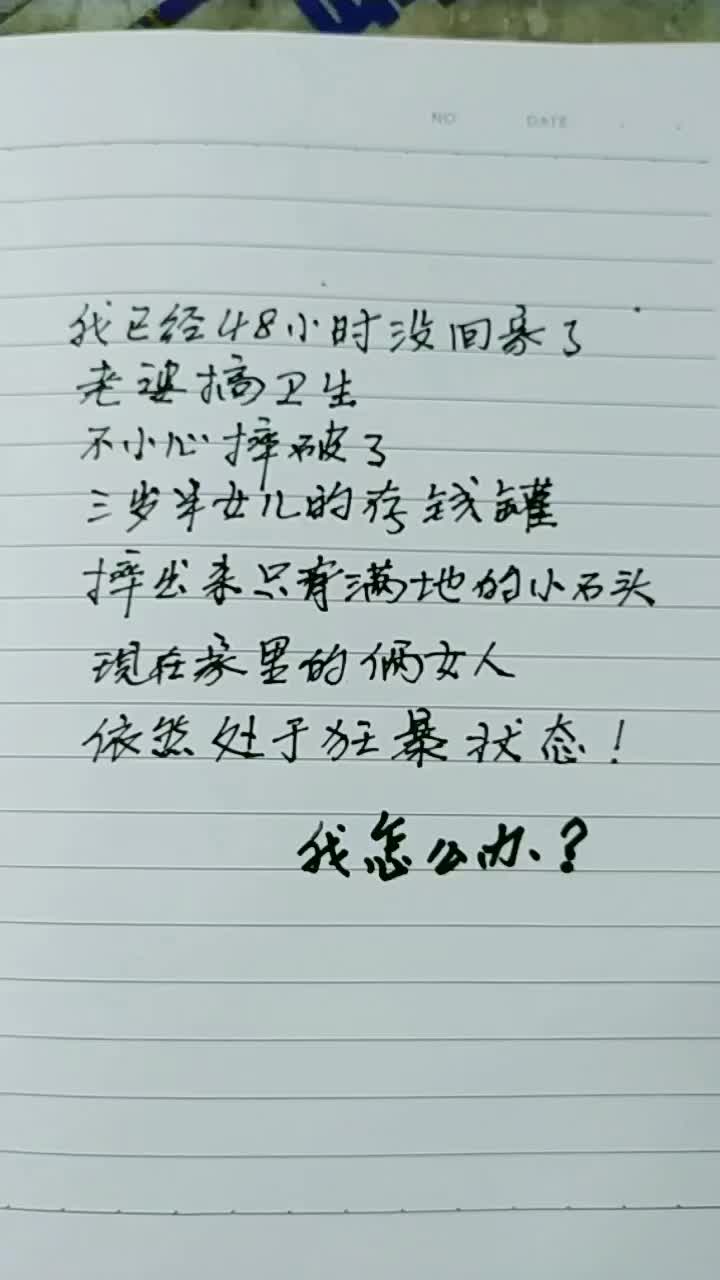 NO DATE
我已经48小时没回家了
老婆搞卫生
不小心摔破了
三岁半女儿的存钱罐
摔出来只有满地的小石头
现在家里的俩女人
依然处于狂暴状态！
我怎么办？